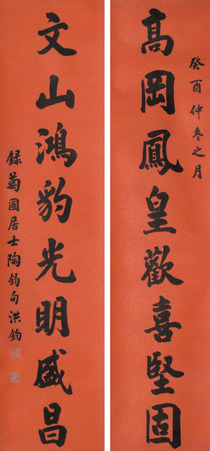 癸酉仲冬之月
高岡鳳皇歡喜堅固
文山鴻豹光明盛昌
錄菊圃居士陶鈞句洪鈞